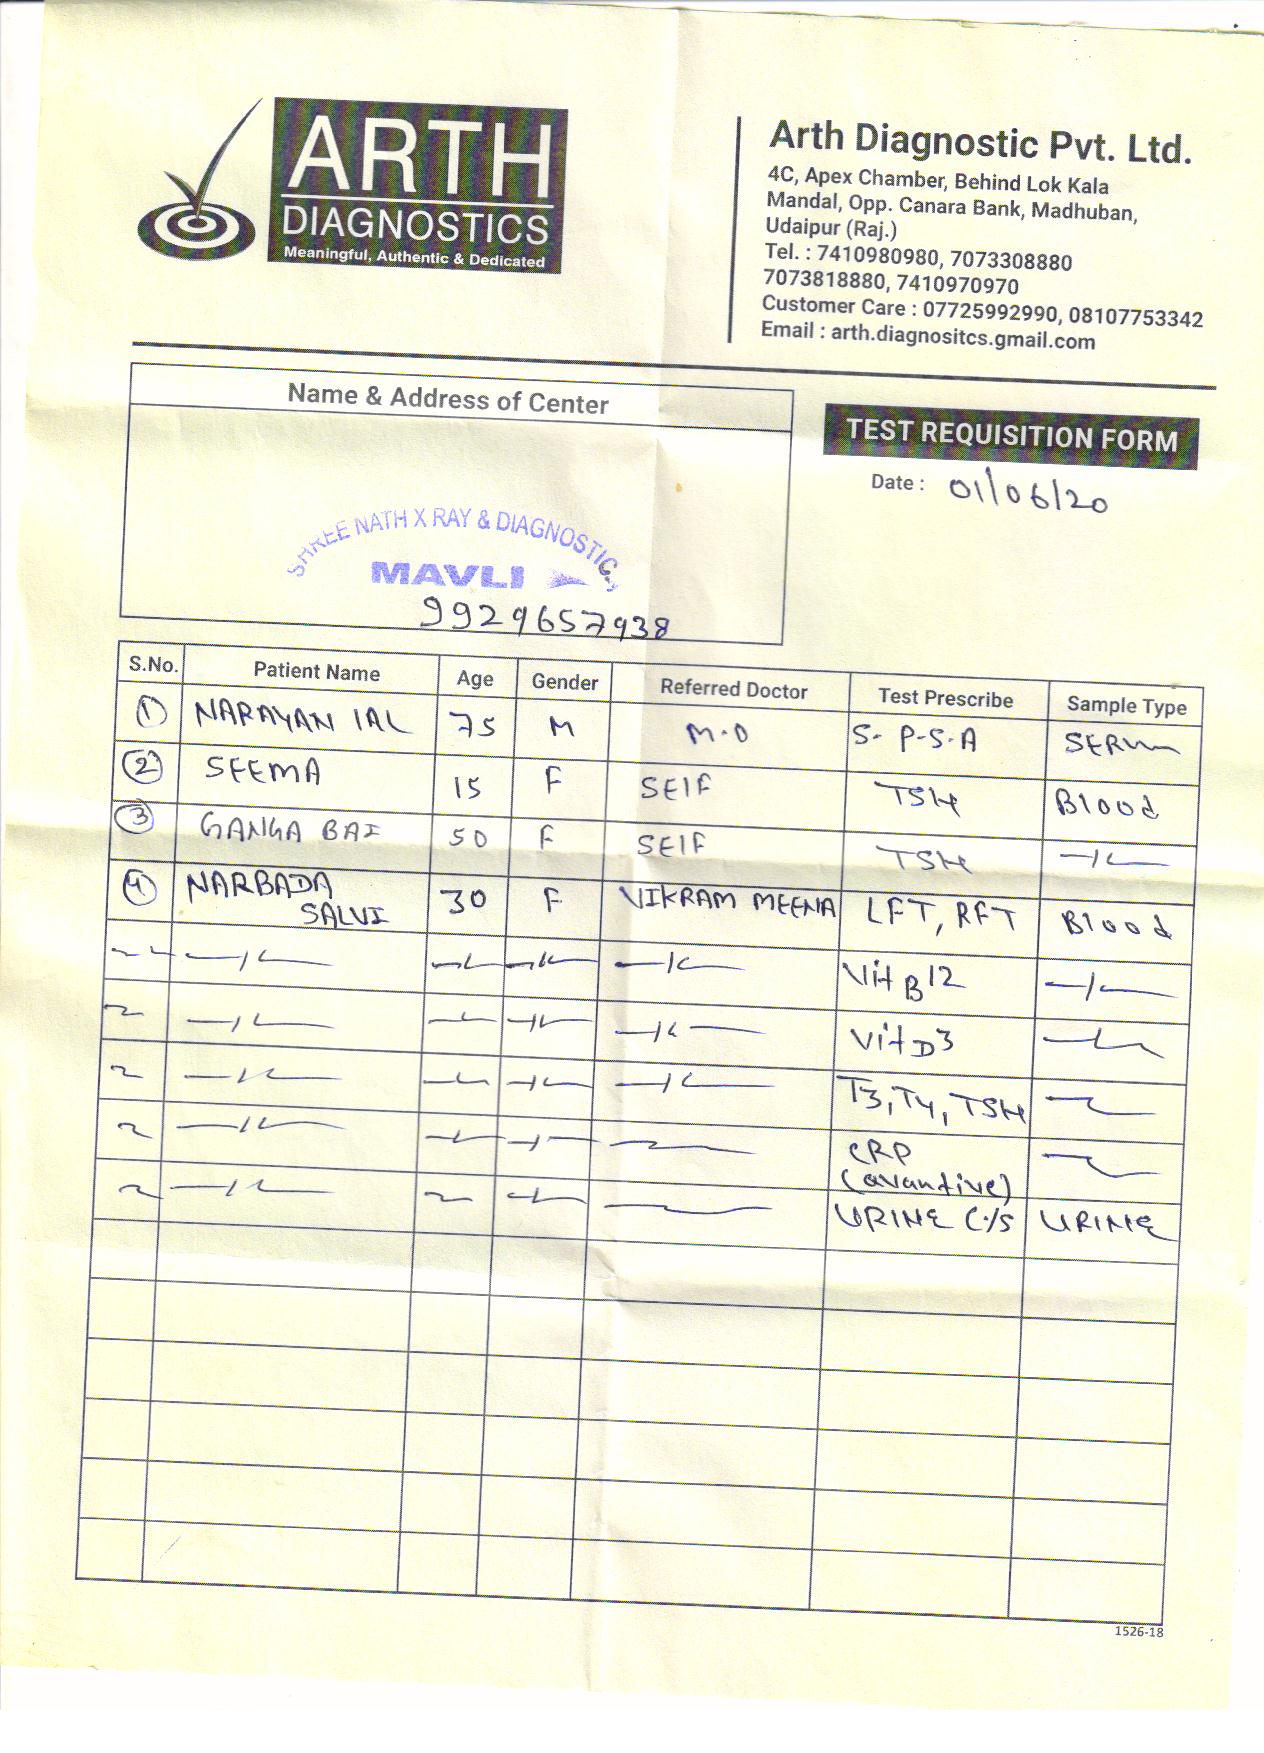 ARTH
DIAGNOSTICS
Meaningful, Authentic & Dedicated
Arth Diagnostic Pvt. Ltd.
4C, Apex Chamber, Behind Lok Kala
Mandal, Opp. Canara Bank, Madhuban,
Udaipur (Raj.)
Tel. : 7410980980, 7073308880
7073818880, 7410970970
Customer Care : 07725992990, 08107753342
Email : arth.diagnositcs.gmail.com
Name & Address of Center
TEST REQUISITION FORM
Date : 01/06/20
SHREE NATH X RAY & DIAGNOSTIC
MAVLI
9929657938
S.No. Patient Name Age Gender Referred Doctor Test Prescribe Sample Type
1 NARAYAN lAL 75 M M.O S- P-S-A SERUM
2 SEEMA 15 F SElF TSH Blood
3 GANGA BAI 50 F SElF TSH —〃—
4 NARBADA SALVI 30 F VIKRAM MEENA LFT, RFT Blood
〃 —〃— —〃— —〃— —〃— Vit B12 —〃—
〃 —〃— —〃— —〃— —〃— Vit D3 —〃—
〃 —〃— —〃— —〃— —〃— T3, T4, TSH —〃—
〃 —〃— —〃— —〃— —〃— CRP —〃—
URINE C/S URINE
1526-18